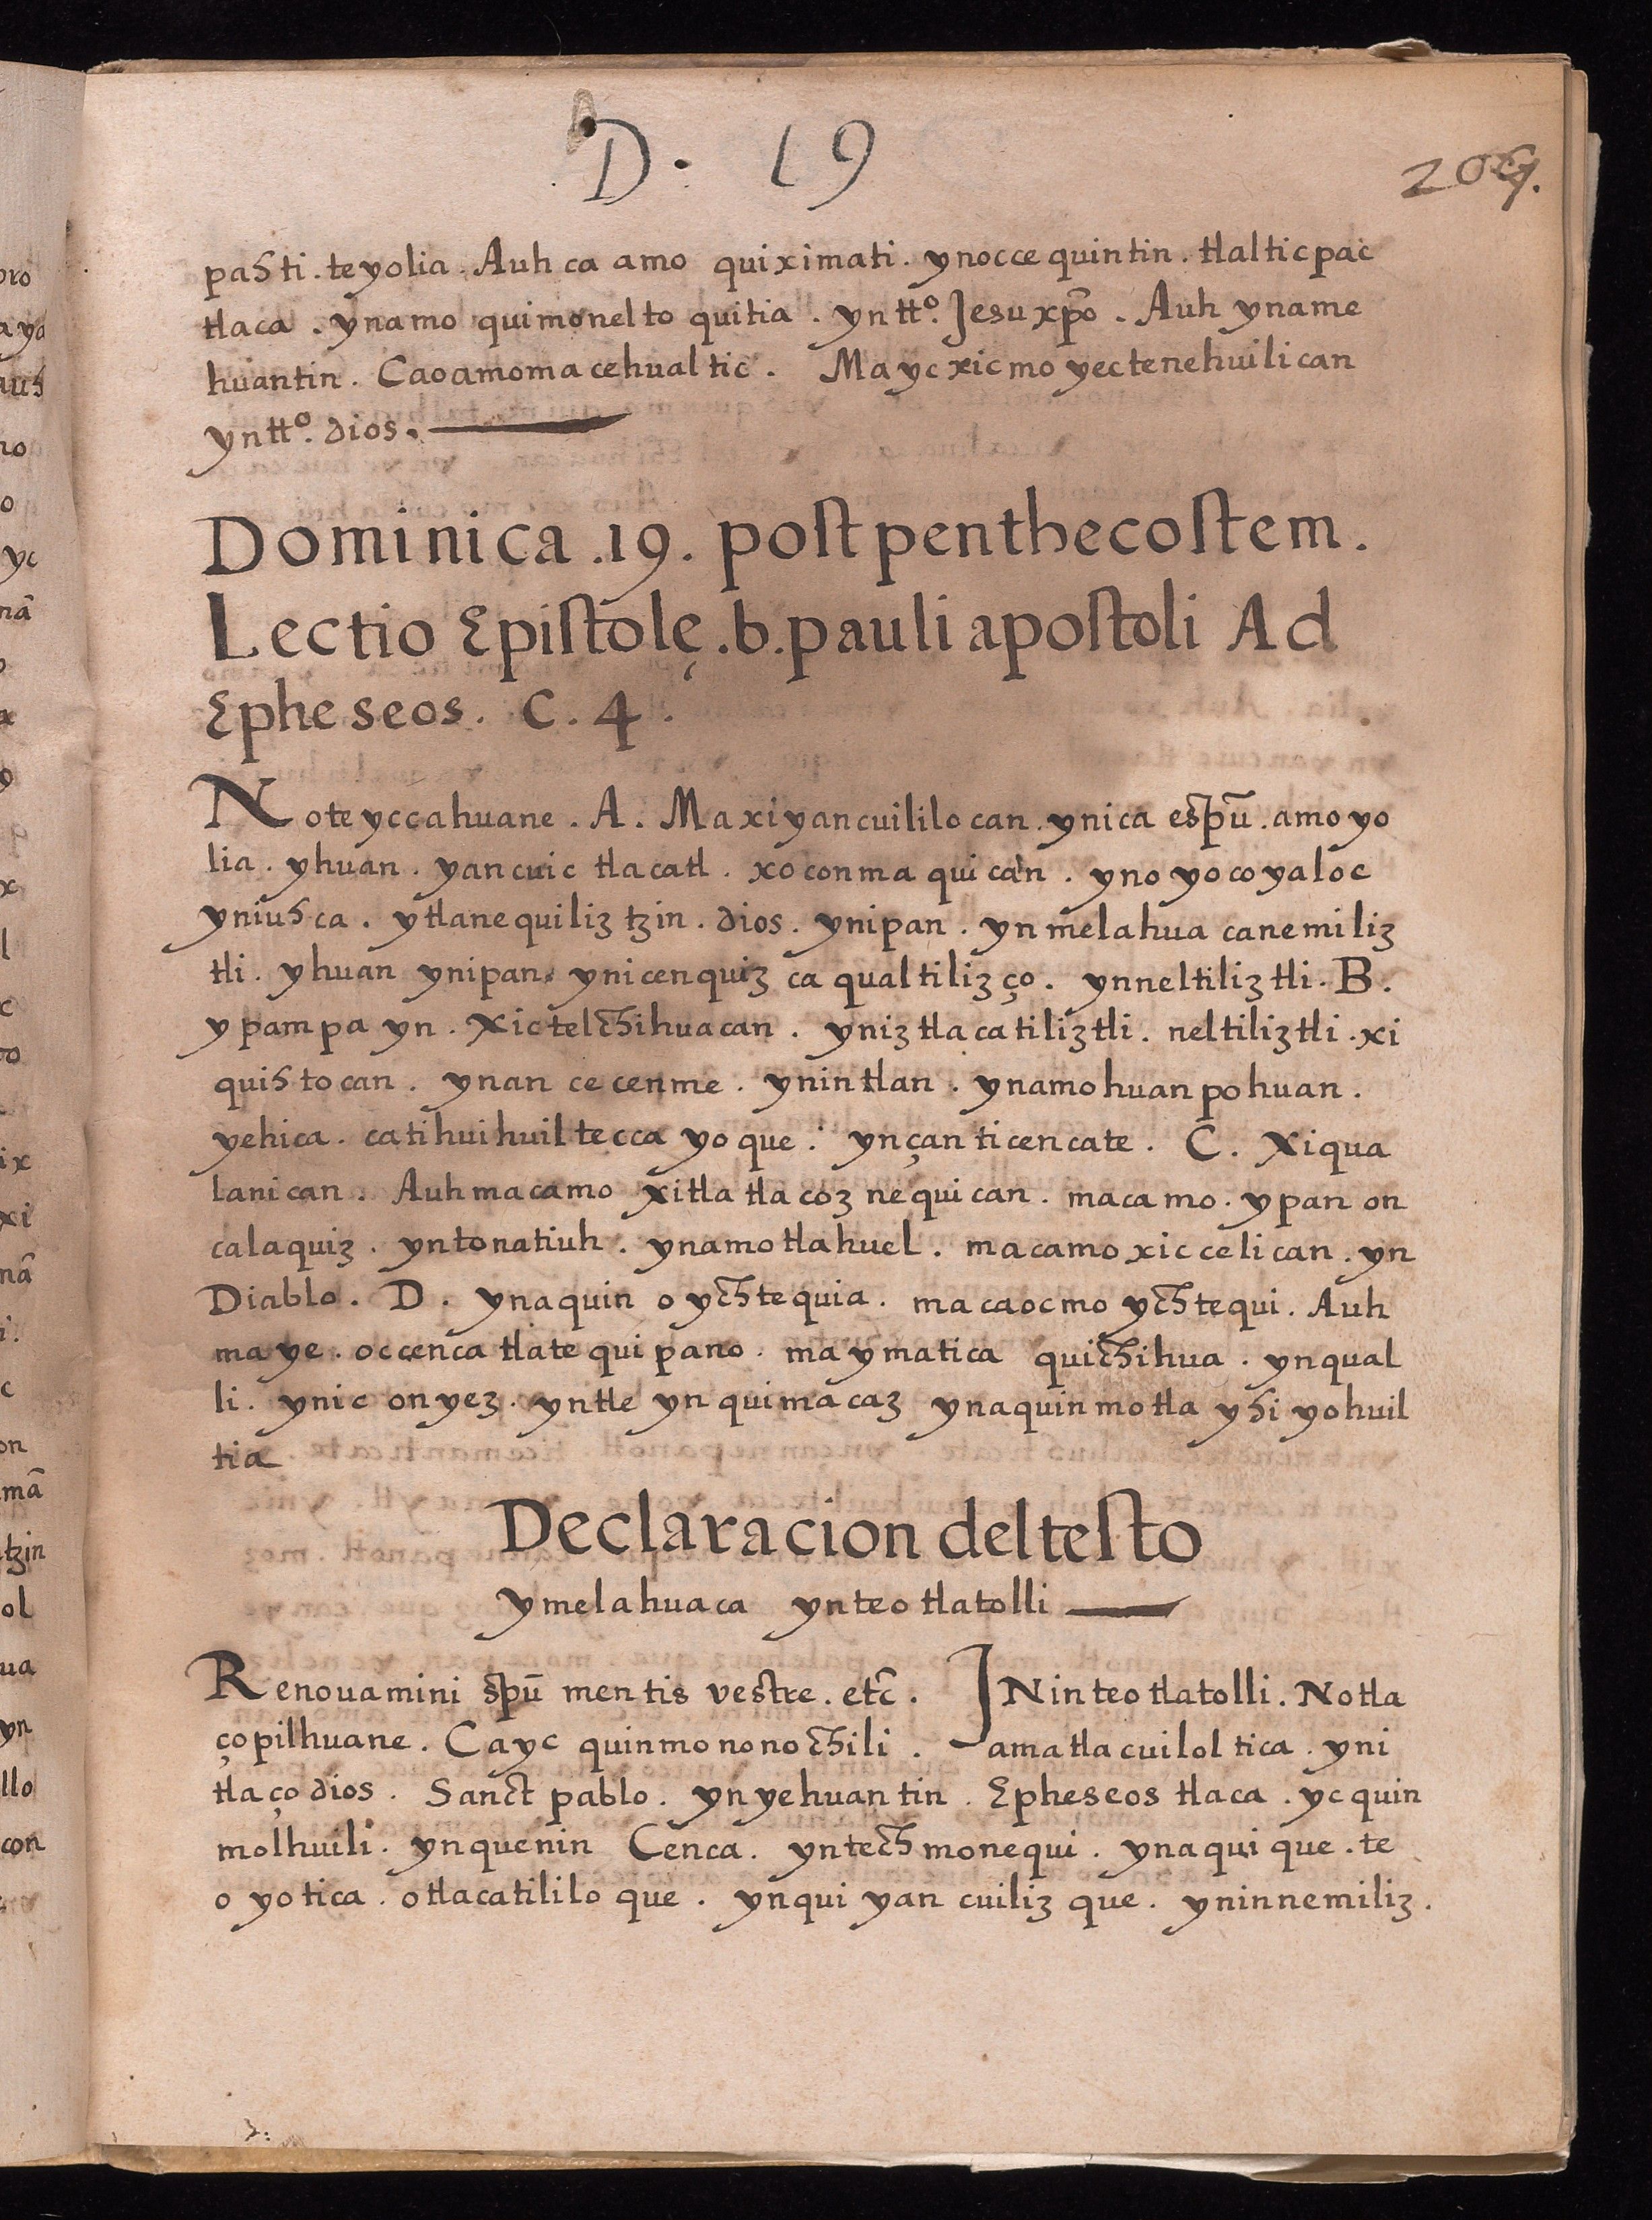 D. 19
pahti. teyolia. Auh ca amo quiximati. ynocce quintin. tlalticpac
tlaca. ynamo quimonelto quitia. yntto. Jesu xpo. Auh yname
huantin. Caoamomacehualtic. Mayc xicmo yectenehuilican
yntto. dios.
Dominica .19. post penthecostem.
Lectio Epistolę. b. pauli apostoli Ad
Epheseos. C. 4.
Noteyccahuane. A. Maxiyancuililocan. ynica espū. amoyo
lia. yhuan. yancuic tlacatl. xoconmaquican. ynoyocoyaloc
yniuhca. ytlanequiliz tzin. dios. ynipan. yn melahua canemiliz
tli. yhuan ynipan. ynicenquiz ca qualtilizço. ynneltiliztli. B.
ypampa yn. Xictelchihuacan. yniztlacatiliztli. neltiliztli. xi
quihtocan. ynan cecenme. ynintlan. ynamohuanpohuan.
yehica. catihuihuiltecca yoque. ynçanticencate. C. Xiqua
lanican. Auhmacamo xitlatlacoznequican. macamo. ypan on
calaquiz. yntonatiuh. ynamotlahuel. macamo xiccelican. yn
Diablo. D. ynaquin o ychtequia. macaocmo ychtequi. Auh
maye. occenca tlatequipano. maymatica quichihua. ynqual
li. ynic onyez. yntle yn quimacaz ynaquinmotla yhiyohuil
tia
Declaracion deltesto
ymelahuaca ynteotlatolli
Renouamini spū mentis vestre. etc̄. INinteotlatolli. Notla
çopilhuane. Cayc quinmononochili. amatlacuiloltica. yni
tlaçodios. Sanct pablo. ynyehuantin. Epheseos tlaca. yc quin
molhuili. ynquenin Cenca. yntech monequi. ynaquique. te
oyotica. otlacatililoque. ynqui yancuilizque. yninnemiliz.